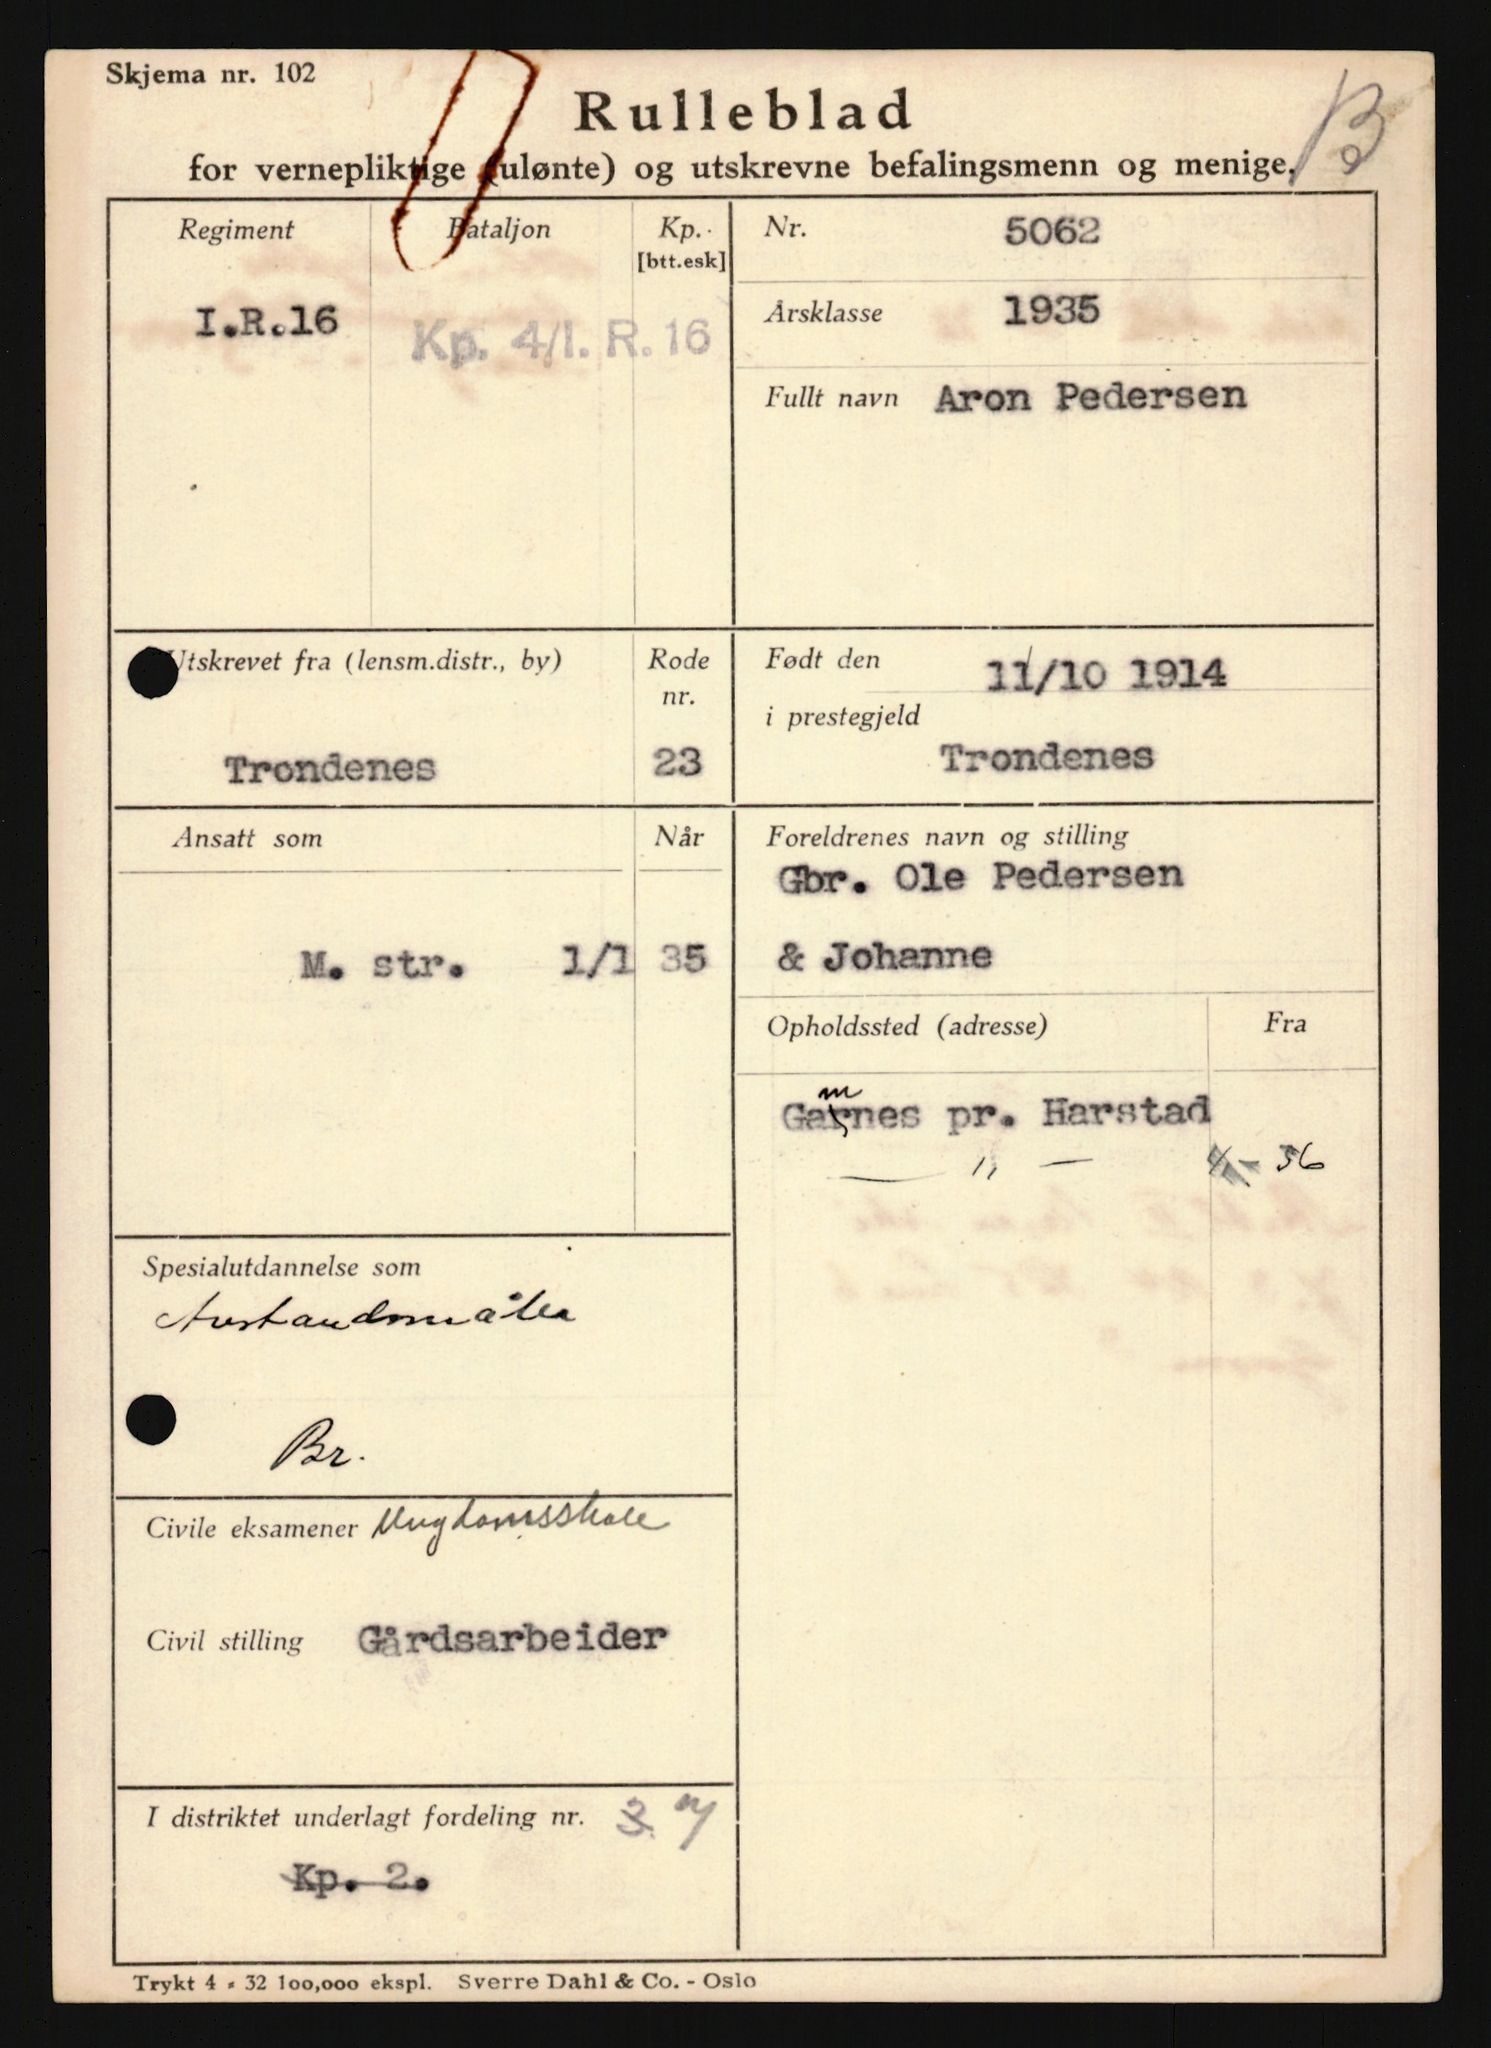 Skjema nr. 102
Rulleblad
for vernepliktige (ulønte) og utskrevne befalingsmenn og menige.
B
Regiment
Bataljon
Kp.
[btt.esk]
I.R.16
Kp. 4/I. R. 16
Nr. 5062
Årsklasse 1935
Fullt navn Aron Pedersen
Utskrevet fra (lensm.distr., by)
Rode
nr.
Trondenes
23
Født den 11/10 1914
i prestegjeld
Trondenes
Ansatt som
Når
M. str. 1/1 35
Foreldrenes navn og stilling
Gbr. Ole Pedersen
& Johanne
Opholdssted (adresse)
Fra
m
Garnes pr. Harstad
— " — 36
Spesialutdannelse som
Avstandsmåler
Br.
Civile eksamener Ungdomsskole
Civil stilling Gårdsarbeider
I distriktet underlagt fordeling nr. 3.
Kp. 2.
Trykt 4 - 32 100,000 ekspl. Sverre Dahl & Co. - Oslo